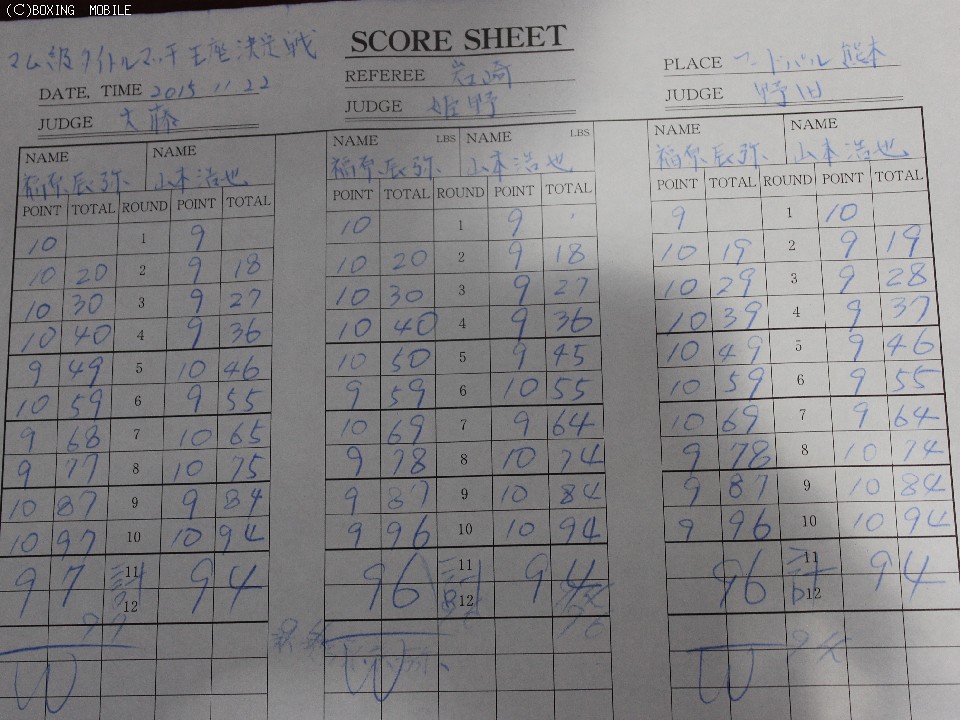 (C)BOXING MOBILE
ママム級タイトルマッチ王座決定戦
SCORE SHEET
DATE, TIME 2015 11 22
REFEREE 岩崎
PLACE フードパル熊本
JUDGE 大藤
JUDGE 姫野
JUDGE 野田
NAME NAME NAME LBS NAME LBS NAME NAME
稲原辰弥 山本浩也 稲原辰弥 山本浩也 稲原辰弥 山本浩也
POINT TOTAL ROUND POINT TOTAL POINT TOTAL ROUND POINT TOTAL POINT TOTAL ROUND POINT TOTAL
10 1 9 10 1 9 9 1 10
10 20 2 9 18 10 20 2 9 18 10 19 2 9 19
10 30 3 9 27 10 30 3 9 27 10 29 3 9 28
10 40 4 9 36 10 40 4 9 36 10 39 4 9 37
9 49 5 10 46 10 50 5 9 45 10 49 5 9 46
10 59 6 9 55 9 59 6 10 55 10 59 6 9 55
9 68 7 10 65 10 69 7 9 64 10 69 7 9 64
9 77 8 10 75 9 78 8 10 74 9 78 8 10 74
10 87 9 9 84 9 87 9 10 84 9 87 9 10 84
10 97 10 10 94 9 96 10 10 94 9 96 10 10 94
97 計 11 94 96 計 11 94 96 計 11 94
12 12 12
W W W